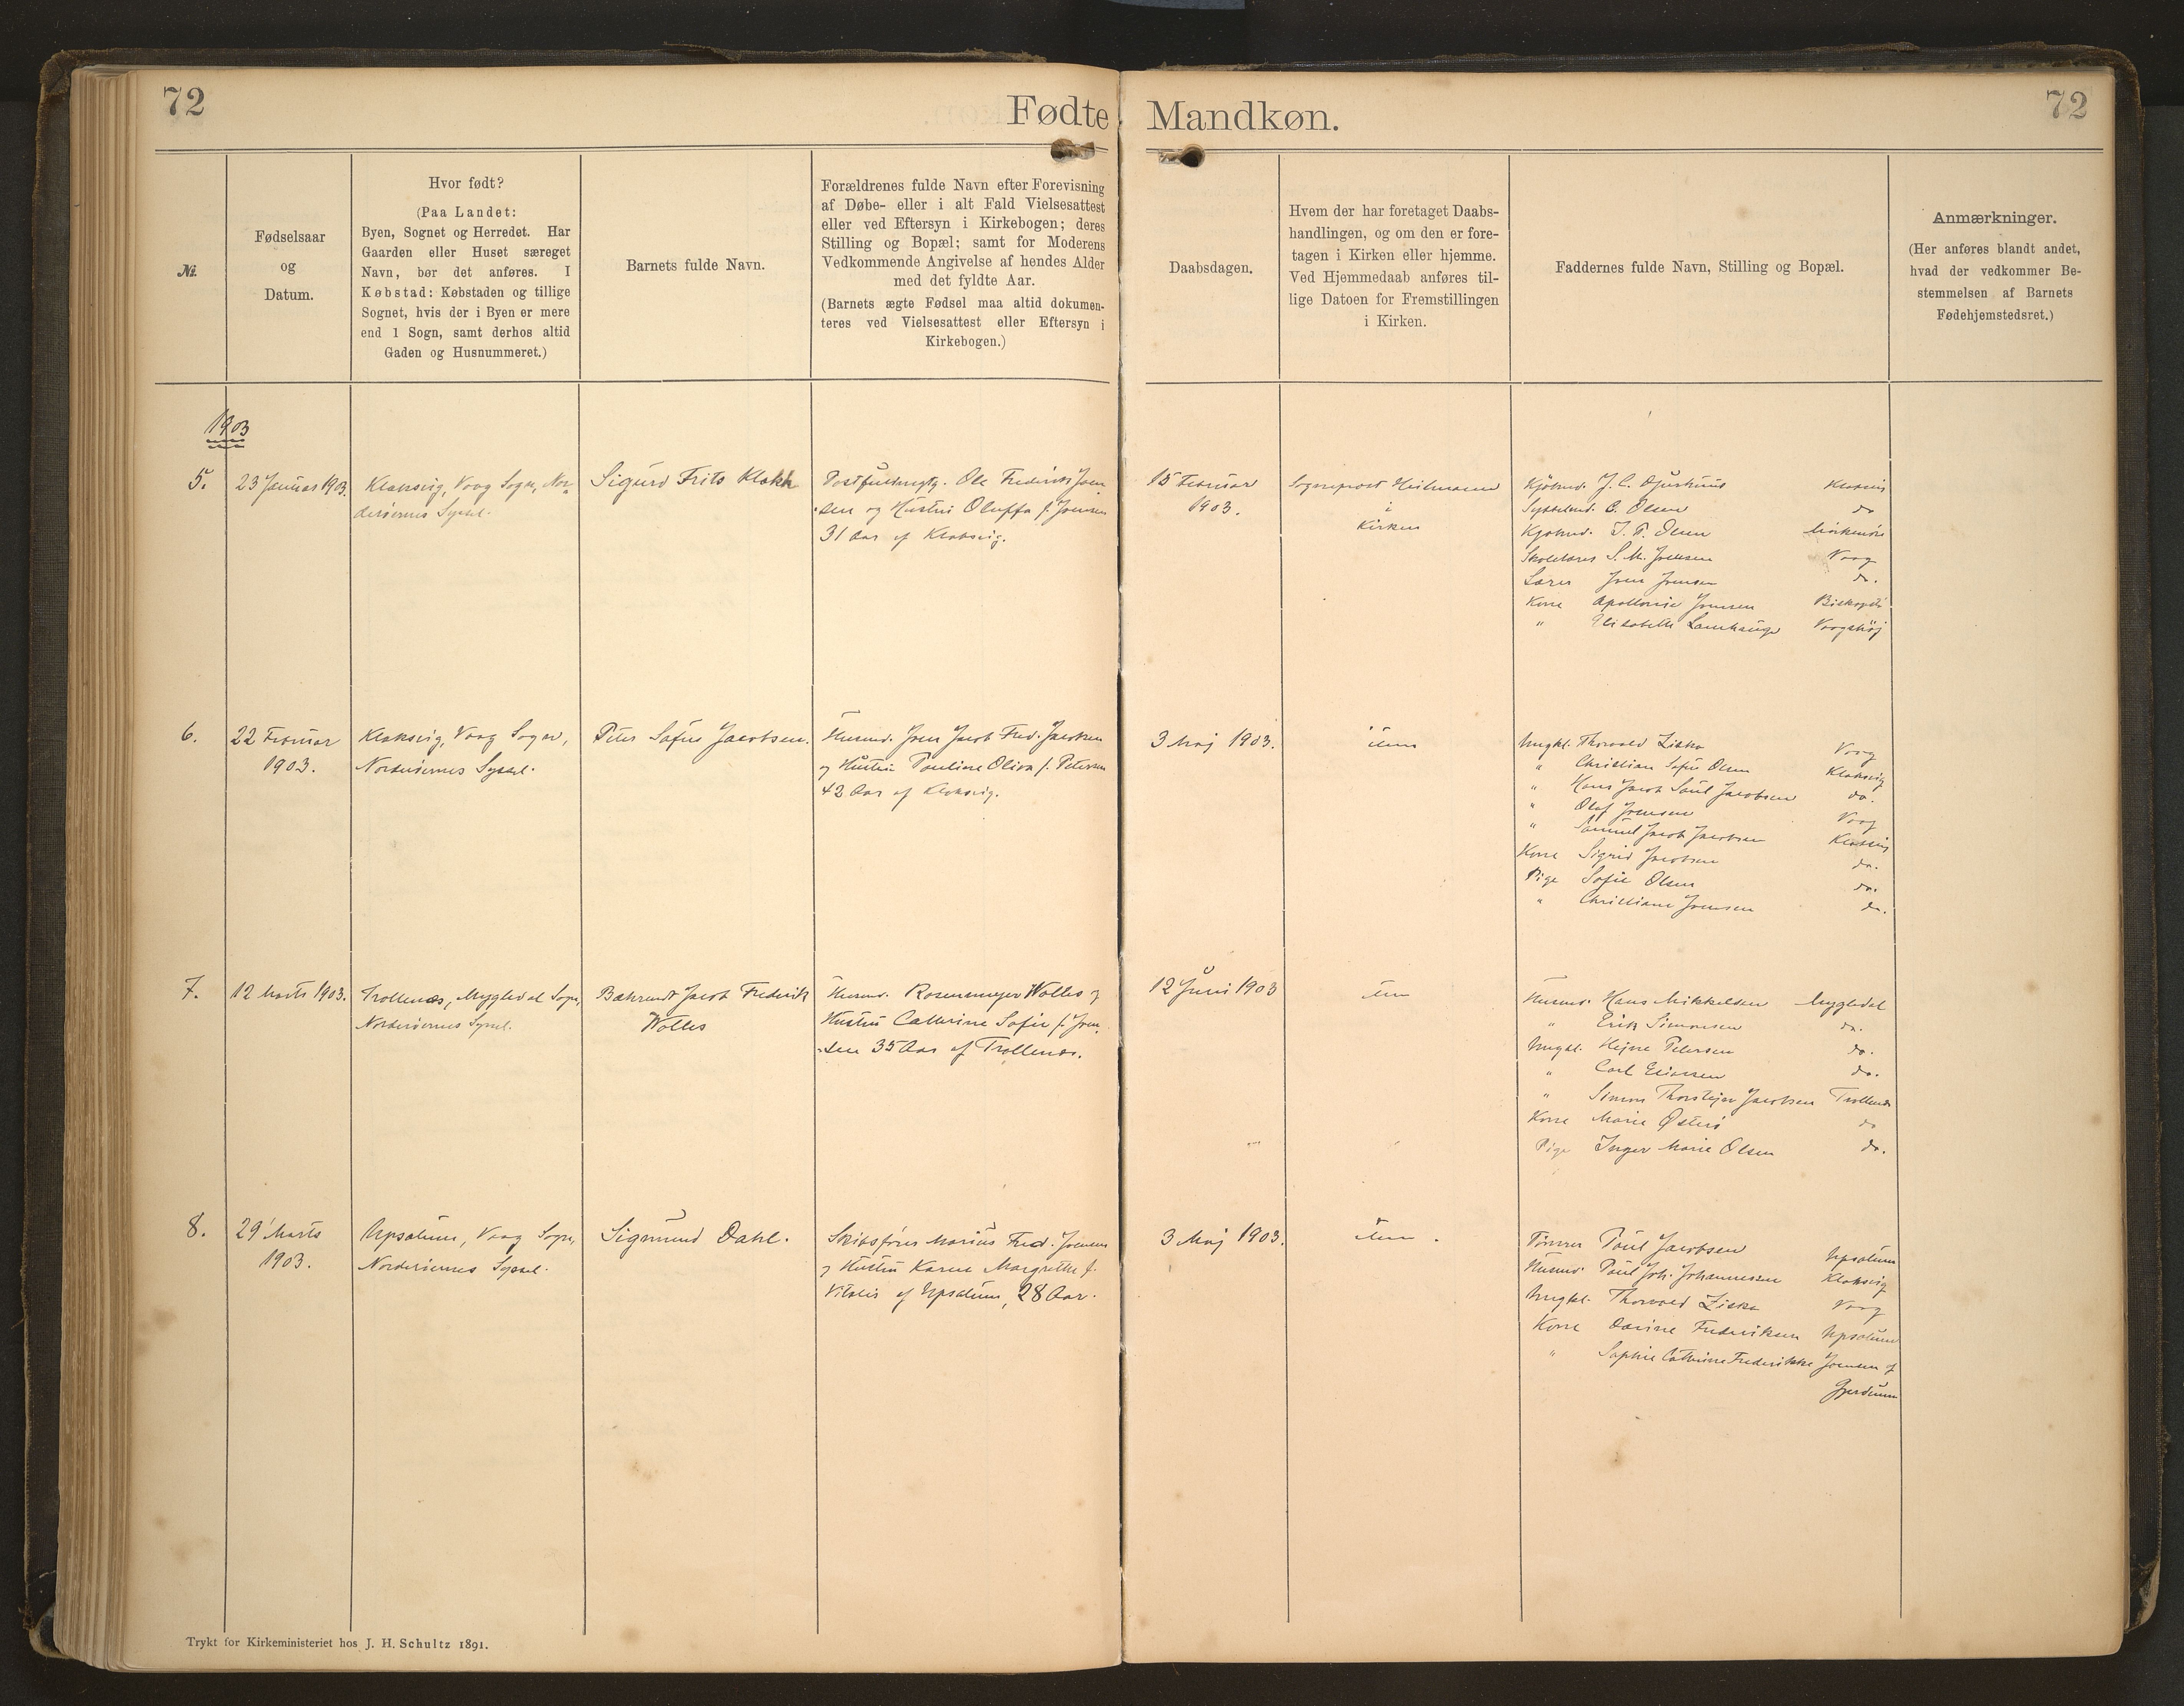 72
Fødte Mandkøn.
72
№
Fødselsaar
og
Datum.
Hvor født?
(Paa Landet:
Byen, Sognet og Herredet. Har
Gaarden eller Huset særeget
Navn, bør det anføres. I
Købstad: Købstaden og tillige
Sognet, hvis der i Byen er mere
end 1 Sogn, samt derhos altid
Gaden og Husnummeret.)
Barnets fulde Navn.
Forældrenes fulde Navn efter Forevisning
af Døbe- eller i alt Fald Vielsesattest
eller ved Eftersyn i Kirkebogen; deres
Stilling og Bopæl; samt for Moderens
Vedkommende Angivelse af hendes Alder
med det fyldte Aar.
(Barnets ægte Fødsel maa altid dokumen-
teres ved Vielsesattest eller Eftersyn i
Kirkebogen.)
Daabsdagen.
Hvem der har foretaget Daabs-
handlingen, og om den er fore-
tagen i Kirken eller hjemme.
Ved Hjemmedaab anføres til-
lige Datoen for Fremstillingen
i Kirken.
Faddernes fulde Navn, Stilling og Bopæl.
Anmærkninger.
(Her anføres blandt andet,
hvad der vedkommer Be-
stemmelsen af Barnets
Fødehjemstedsret.)
1903
5.
23 Januar 1903.
Klaksvig, Vaag Sogn, Nor-
derøernes Syssel.
Sigurd Frits Klakk
Ole Frederik Joen-
sen og Hustru Oluffa f. Joensen
31 Aar af Klaksvig.
15 Februar
1903.
Sogneprest Heilmann
i
Kirken
Kjøbmd. J. C. Djurhuus Klaksvig
Sysselmd. C. Olsen do
Kjøbmd. J. P. Olsen
Skolelærer S. M. Joensen Vaag
Lærer Joen Joensen do.
Kone Apollonie Joensen
" Elisabeth Lamhauge
6.
22 Februar
1903.
Klaksvig, Vaag Sogn,
Norderøernes Syssel.
Peter Sofus Jacobsen.
Husmd. Joen Jacob Fred. Jacobsen
og Hustru Pauline Oliva f. Petersen
42 Aar af Klaksvig.
3 Maj 1903.
item
Ungkl. Thorvald Ziska Vaag
" Christian Sofus Olsen Klaksvig
" Hans Jacob Paul Jacobsen do.
" Olaf Joensen Vaag
" Samuel Jacob Jacobsen Klaksvig
Kone Sigrid Jacobsen do.
Pige Sofie Olsen do.
" Christiane Joensen do.
7.
12 Marts 1903.
Trollenæs, Mygledal Sogn,
Norderøernes Syssel.
Bahrendt Jacob Frederik
Wolles
Husmd. Rosenmeyer Wolles og
Hustru Cathrine Sofie f. Joen-
sen 35 Aar af Trollenæs.
12 Juni 1903
item
Husmd. Hans Mikkelsen Mygledal
" Erik Simonsen do.
Ungkl. Hejne Petersen do.
" Carl Eliassen do.
" Simon Thorstejn Jacobsen Trollenæs
Kone Marie Østerø do
Pige Inger Marie Olsen do.
8.
29 Marts
1903.
Upsalum, Vaag Sogn,
Norderøernes Syssel.
Sigmund Dahl.
Skibsfører Marius Fred. Joensen
og Hustru Karen Margrethe f.
Vitalis af Upsalum, 28 Aar.
3 Maj 1903.
item.
Tømrer Poul Jacobsen Upsalum
Husmd. Poul Joh. Johannesen Klaksvig
Ungkl. Thorvald Ziska Vaag
Kone Frederiksen Upsalum
" Sophie Cathrine Frederikke Joensen af
Gjerdum
Trykt for Kirkeministeriet hos J. H. Schultz 1891.